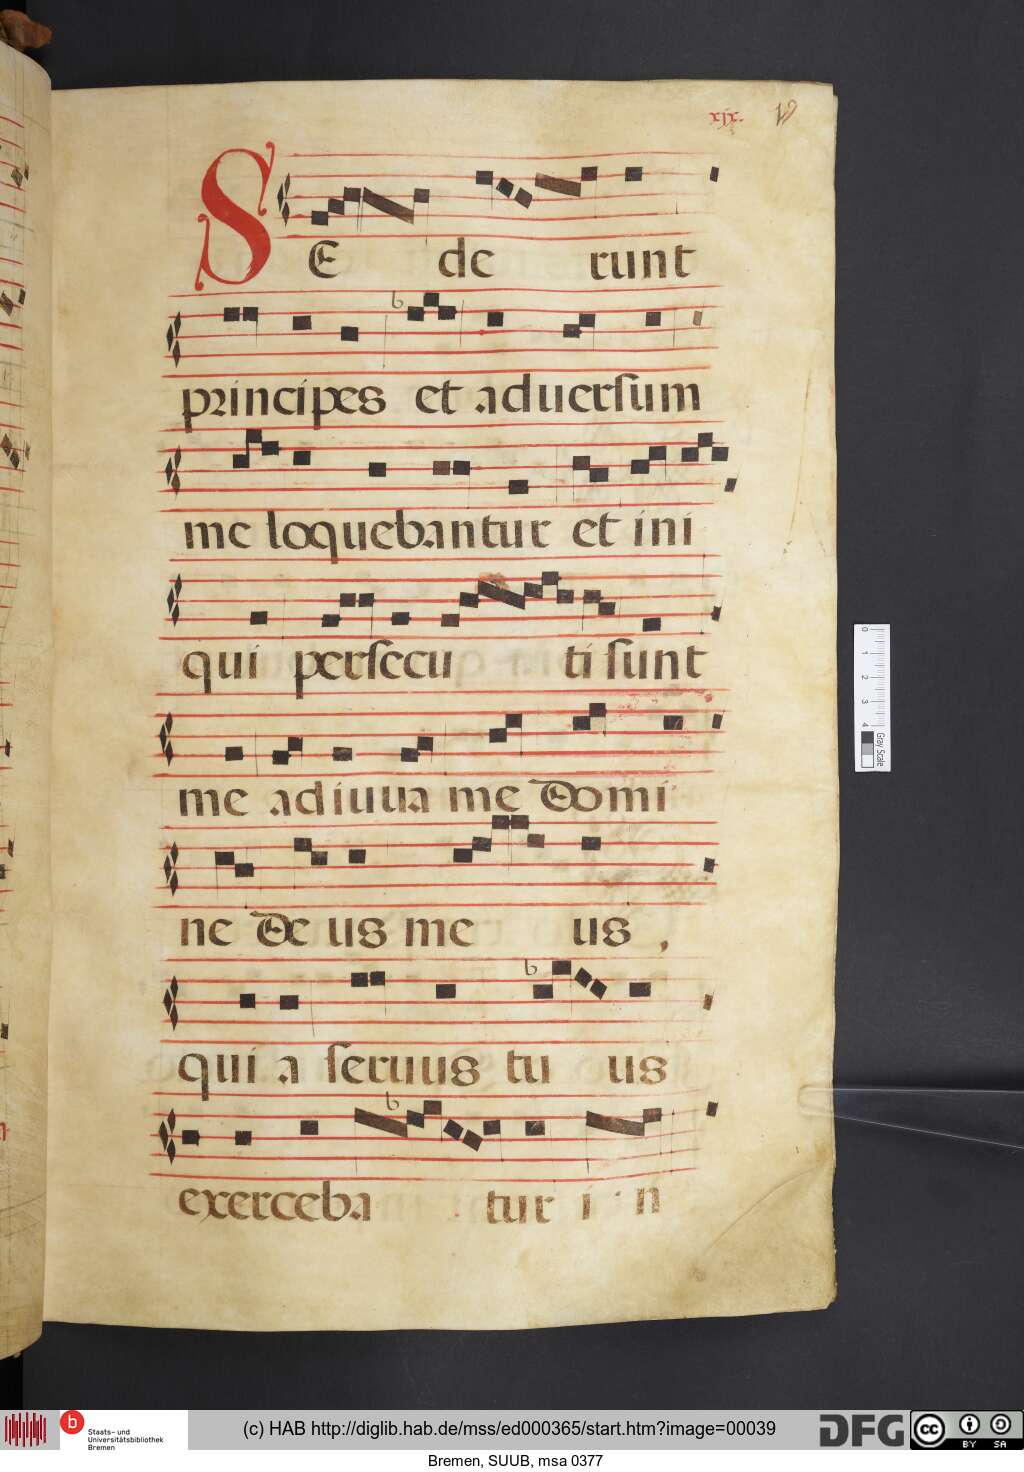 xix. 19
SE de runt
principes et aduersum
me loquebantur et ini
qui persecu ti sunt
me adiuua me Domi
ne De us me us,
qui a seruus tu us
exerceba tur i n
0 1 2 3 4 Gray Scale
b Staats- und
Universitätsbibliothek
Bremen
(c) HAB http://diglib.hab.de/mss/ed000365/start.htm?image=00039
DFG
cc BY SA
Bremen, SUUB, msa 0377